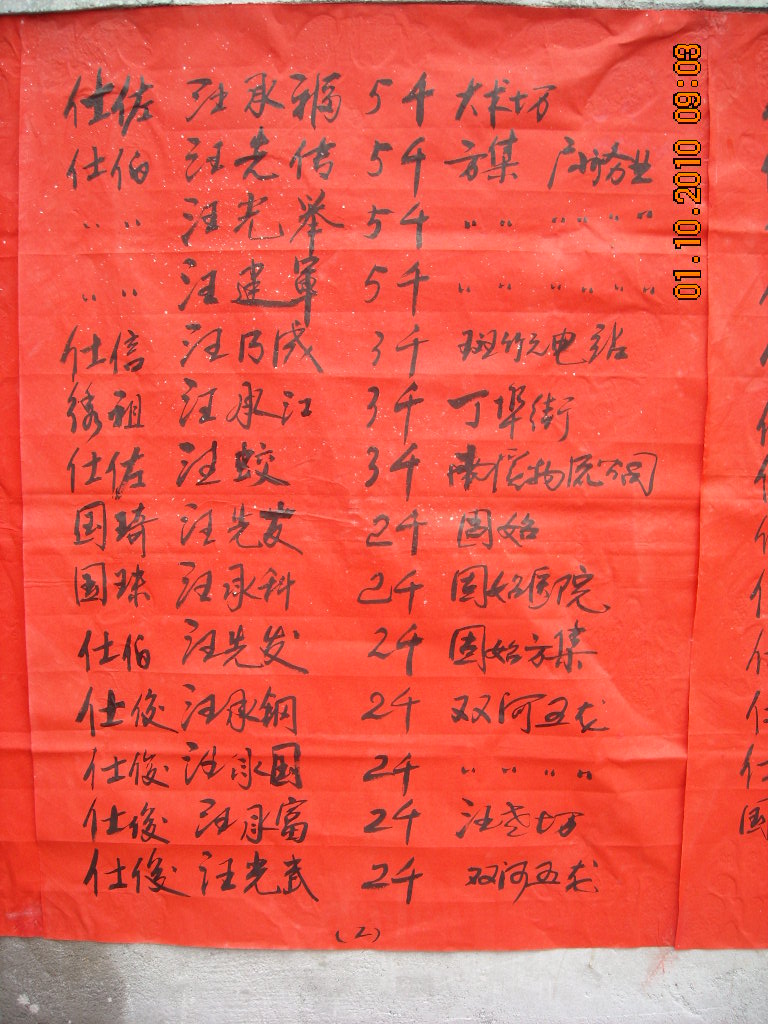 仕佐 汪承福 5千 大术坊
仕伯 汪先传 5千 方集
〃 〃 汪光举 5千 〃 〃 〃 〃 〃 〃
〃 〃 汪建军 5千 〃 〃 〃 〃 〃 〃
仕信 汪乃成 3千 电站
绣祖 汪承江 3千 丁埠街
仕佐 汪蛟 3千 物流公司
国琦 汪先友 2千 固始
国珠 汪承科 2千 固始医院
仕伯 汪先发 2千 固始方集
仕俊 汪承钢 2千 双河五龙
仕俊 汪承国 2千 〃 〃 〃 〃
仕俊 汪承富 2千 汪老坊
仕俊 汪光武 2千 双河五龙
(2)
01.10.2010 09:03